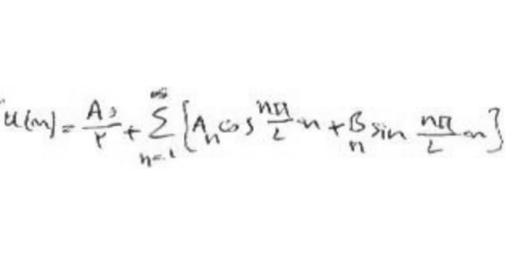 u(x) = A₀/2 + ∑_{n=1}^{∞} [Aₙ cos nπ/L x + Bₙ sin nπ/L x]